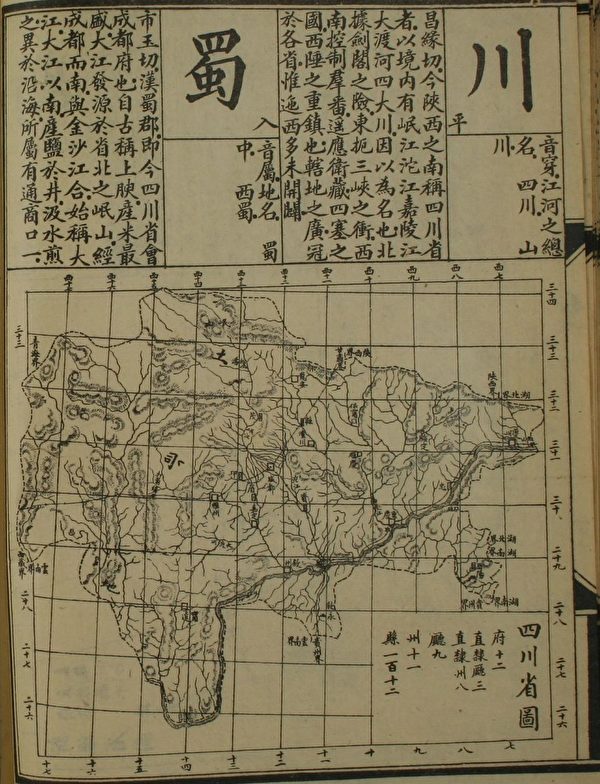 川
平
音穿江河之總
名 四川 山
川
昌緣切今陝西之南稱四川省
者以境內有岷江沱江嘉陵江
大渡河四大川因以為名也北
據劍閣之險東扼三峽之衝西
南控制羣番遙應衛藏四塞之
國西陲之重鎮也轄地之廣冠
於各省惟迤西多未開闢
蜀
入
音屬地名 蜀
中 西蜀
市玉切漢蜀郡即今四川省會
成都府也自古稱上腴產米最
盛大江發源於省北之岷山經
成都而南與金沙江合始稱大
江大江以南產鹽於井汲水煎
之異於沿海所屬有通商口一
四川省圖
府十二
直隸廳三
直隸州八
廳九
州十一
縣一百十二
西七
西八
西九
西十
西十一
西十二
西十三
西十四
三十四
三十三
三十二
三十一
三十
二十九
二十八
二十七
二十六
陝西界
湖北界
陝西界
青海界
湖北界
湖南界
湖南界
貴州界
雲南界
雲南界
成都
七
八
九
十
十一
十二
十三
十四
十五
十六
十七
三十三
三十二
三十一
三十
二十九
二十八
二十七
二十六